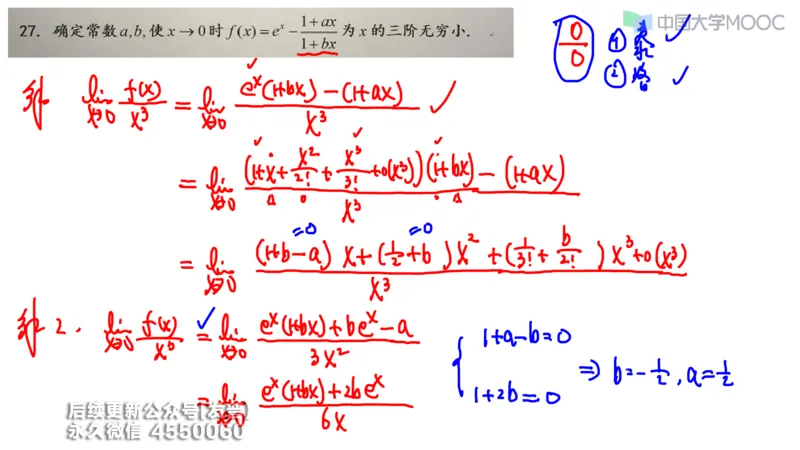 中国大学MOOC
27. 确定常数 a,b,使 x→0 时 f(x)=e^x − (1+ax)/(1+bx) 为 x 的三阶无穷小.
0/0
①
②
lim_{x→0} f(x)/x^3 = lim_{x→0} (e^x(1+bx)−(1+ax))/x^3 ✓
= lim_{x→0} ((1+x+x^2/2!+x^3/3!+o(x^3))(1+bx)−(1+ax))/x^3
=0 =0
= lim_{x→0} ((1+b−a)x+(1/2+b)x^2+(1/3!+b/2!)x^3+o(x^3))/x^3
2. lim_{x→0} f(x)/x^3 ✓= lim_{x→0} (e^x(1+bx)+be^x−a)/3x^2
= lim_{x→0} (e^x(1+bx)+2be^x)/6x
{ 1+a−b=0
1+2b=0
⇒ b=−1/2, a=1/2
后续更新公众号(发学)
永久微信 4550060